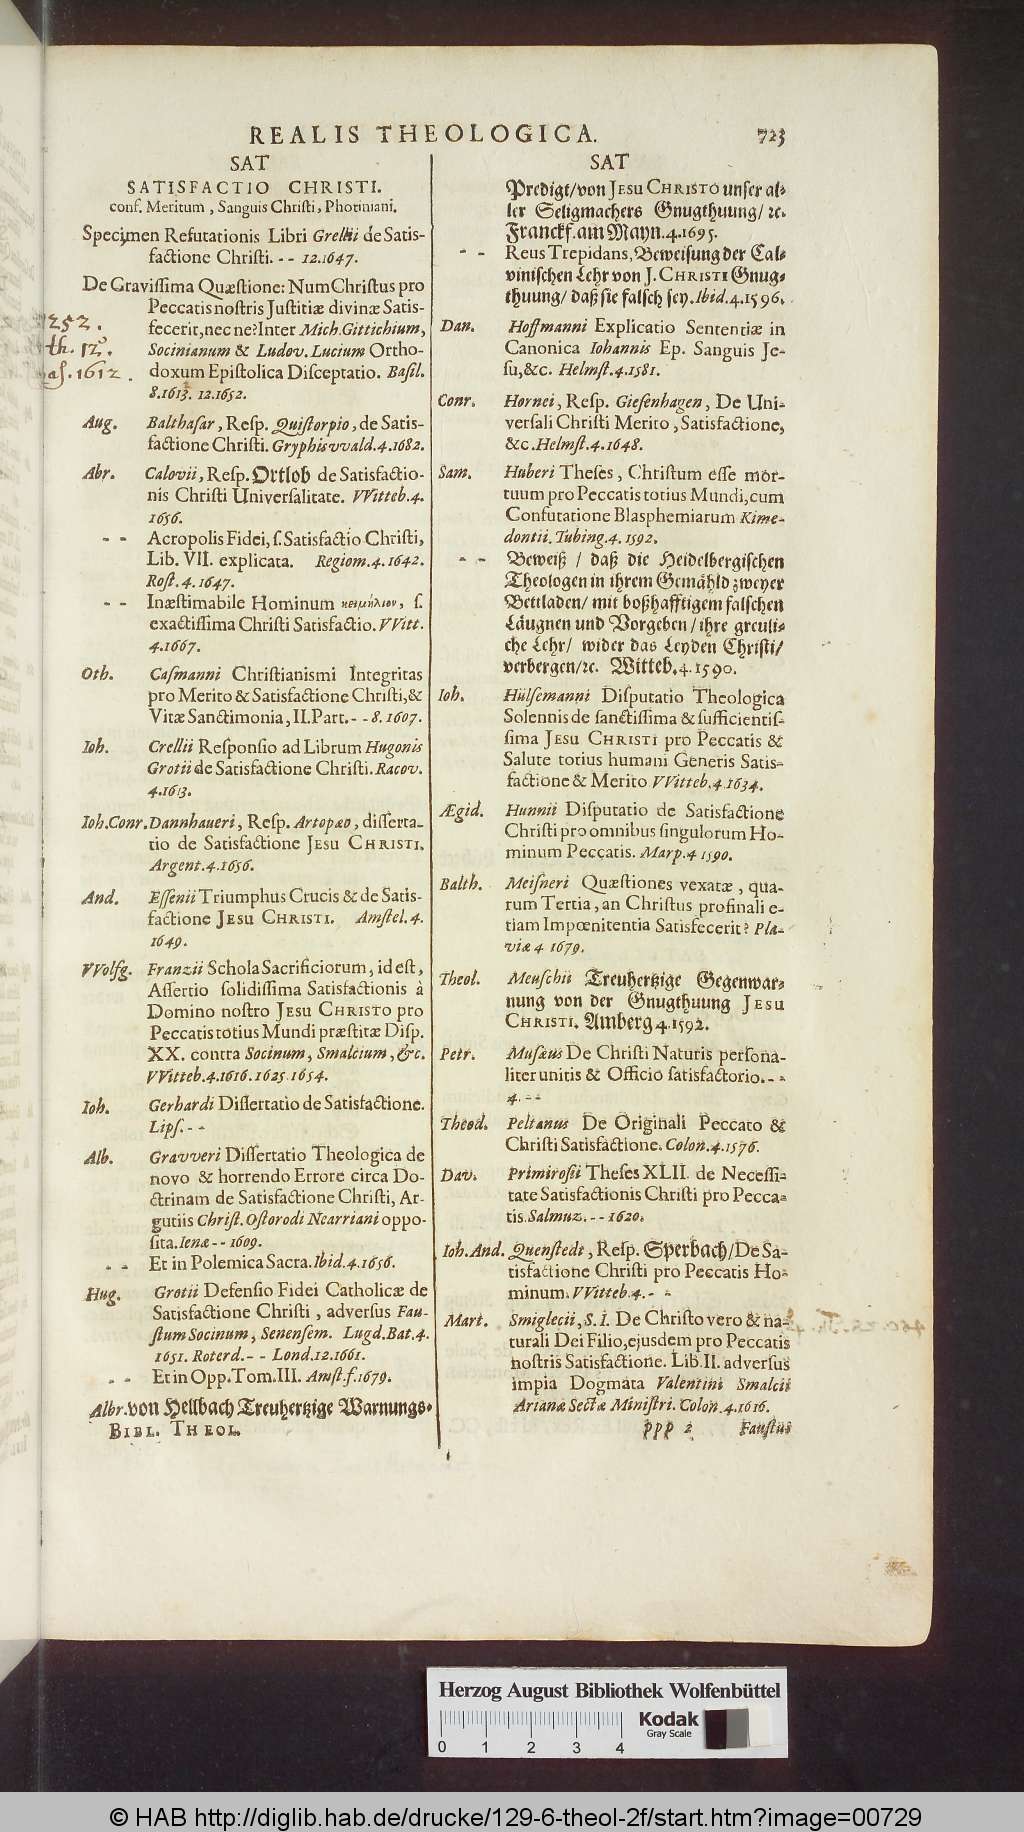 REALIS THEOLOGICA. 723
SAT
SATISFACTIO CHRISTI.
conf. Meritum, Sanguis Christi, Photiniani.
Specimen Refutationis Libri Grellii de Satis-
factione Christi. -- 12.1647.
De Gravissima Quæstione: Num Christus pro
Peccatis nostris Justitiæ divinæ Satis-
fecerit, nec ne? Inter Mich. Gittichium,
Socinianum & Ludov. Lucium Ortho-
doxum Epistolica Disceptatio. Basil.
8.1613. 12.1652.
252.
th. 12.
as. 1612.
Aug. Balthasar, Resp. Quistorpio, de Satis-
factione Christi. Gryphisvvald. 4.1682.
Abr. Calovii, Resp. Ortlob de Satisfactio-
nis Christi Universalitate. VVitteb. 4.
1656.
-- Acropolis Fidei, s. Satisfactio Christi,
Lib. VII. explicata. Regiom. 4.1642.
Rost. 4.1647.
-- Inæstimabile Hominum κειμήλιον, s.
exactissima Christi Satisfactio. VVitt.
4.1667.
Oth. Casmanni Christianismi Integritas
pro Merito & Satisfactione Christi, &
Vitæ Sanctimonia, II. Part. -- 8. 1607.
Ioh. Crellii Responsio ad Librum Hugonis
Grotii de Satisfactione Christi. Racov.
4.1613.
Ioh. Conr. Dannhaueri, Resp. Artopæo, disserta-
tio de Satisfactione JESU CHRISTI.
Argent. 4.1656.
And. Essenii Triumphus Crucis & de Satis-
factione JESU CHRISTI. Amstel. 4.
1649.
VVolfg. Franzii Schola Sacrificiorum, id est,
Assertio solidissima Satisfactionis à
Domino nostro JESU CHRISTO pro
Peccatis totius Mundi præstitæ Disp.
XX. contra Socinum, Smalcium, &c.
VVitteb. 4.1616. 1625. 1654.
Ioh. Gerhardi Dissertatio de Satisfactione.
Lips. --
Alb. Gravveri Dissertatio Theologica de
novo & horrendo Errore circa Do-
ctrinam de Satisfactione Christi, Ar-
gutiis Christ. Ostorodi Nearriani oppo-
sita. Ienæ -- 1609.
-- Et in Polemica Sacra. Ibid. 4.1656.
Hug. Grotii Defensio Fidei Catholicæ de
Satisfactione Christi, adversus Fau-
stum Socinum, Senensem. Lugd. Bat. 4.
1651. Roterd. -- Lond. 12.1661.
-- Et in Opp. Tom. III. Amst. f. 1679.
Albr. von Hellbach Treuhertzige Warnungs-
BIBL. THEOL.
SAT
Predigt/von JESU CHRISTO unser al-
ler Seligmachers Gnugthuung/ ꝛc.
Franckf. am Mayn. 4.1695.
-- Reus Trepidans, Beweisung der Cal-
vinischen Lehr von J. CHRISTI Gnug-
thuung/ daß sie falsch sey. Ibid. 4.1596.
Dan. Hoffmanni Explicatio Sententiæ in
Canonica Iohannis Ep. Sanguis Je-
su, &c. Helmst. 4.1581.
Conr. Hornei, Resp. Giesenhagen, De Uni-
versali Christi Merito, Satisfactione,
&c. Helmst. 4.1648.
Sam. Huberi Theses, Christum esse mor-
tuum pro Peccatis totius Mundi, cum
Confutatione Blasphemiarum Kime-
dontii. Tubing. 4.1592.
-- Beweiß / daß die Heidelbergischen
Theologen in ihrem Gemähld zweyer
Bettladen/ mit boßhafftigem falschen
Läugnen und Vorgeben/ ihre greuli-
che Lehr/ wider das Leyden Christi/
verbergen/ꝛc. Witteb. 4.1590.
Ioh. Hülsemanni Disputatio Theologica
Solennis de sanctissima & sufficientis-
sima JESU CHRISTI pro Peccatis &
Salute totius humani Generis Satis-
factione & Merito VVitteb. 4.1634.
Ægid. Hunnii Disputatio de Satisfactione
Christi pro omnibus singulorum Ho-
minum Peccatis. Marp. 4 1590.
Balth. Meisneri Quæstiones vexatæ, qua-
rum Tertia, an Christus pro finali e-
tiam Impœnitentia Satisfecerit? Pla-
viæ 4 1679.
Theol. Meuschii Treuhertzige Gegenwar-
nung von der Gnugthuung JESU
CHRISTI. Amberg 4.1592.
Petr. Musæus De Christi Naturis persona-
liter unitis & Officio satisfactorio. --
4. --
Theod. Peltanus De Originali Peccato &
Christi Satisfactione. Colon. 4.1576.
Dav. Primirosii Theses XLII. de Necessi-
tate Satisfactionis Christi pro Pecca-
tis Salmuz. -- 1620.
Ioh. And. Quenstedt, Resp. Sperbach/De Sa-
tisfactione Christi pro Peccatis Ho-
minum. VVitteb. 4. --
Mart. Smiglecii, S. I. De Christo vero & na-
turali Dei Filio, ejusdem pro Peccatis
nostris Satisfactione. Lib. II. adversus
impia Dogmata Valentini Smalcii
Arianæ Sectæ Ministri. Colon. 4.1616.
ppp 2 Faustus
Herzog August Bibliothek Wolfenbüttel
0 1 2 3 4
Kodak
Gray Scale
© HAB http://diglib.hab.de/drucke/129-6-theol-2f/start.htm?image=00729